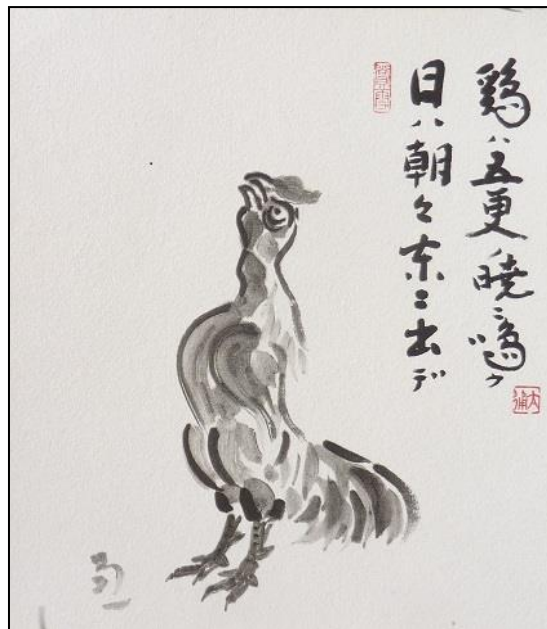 鶏ハ五更ノ暁ニ鳴ク
日ハ朝々東ニ出デ